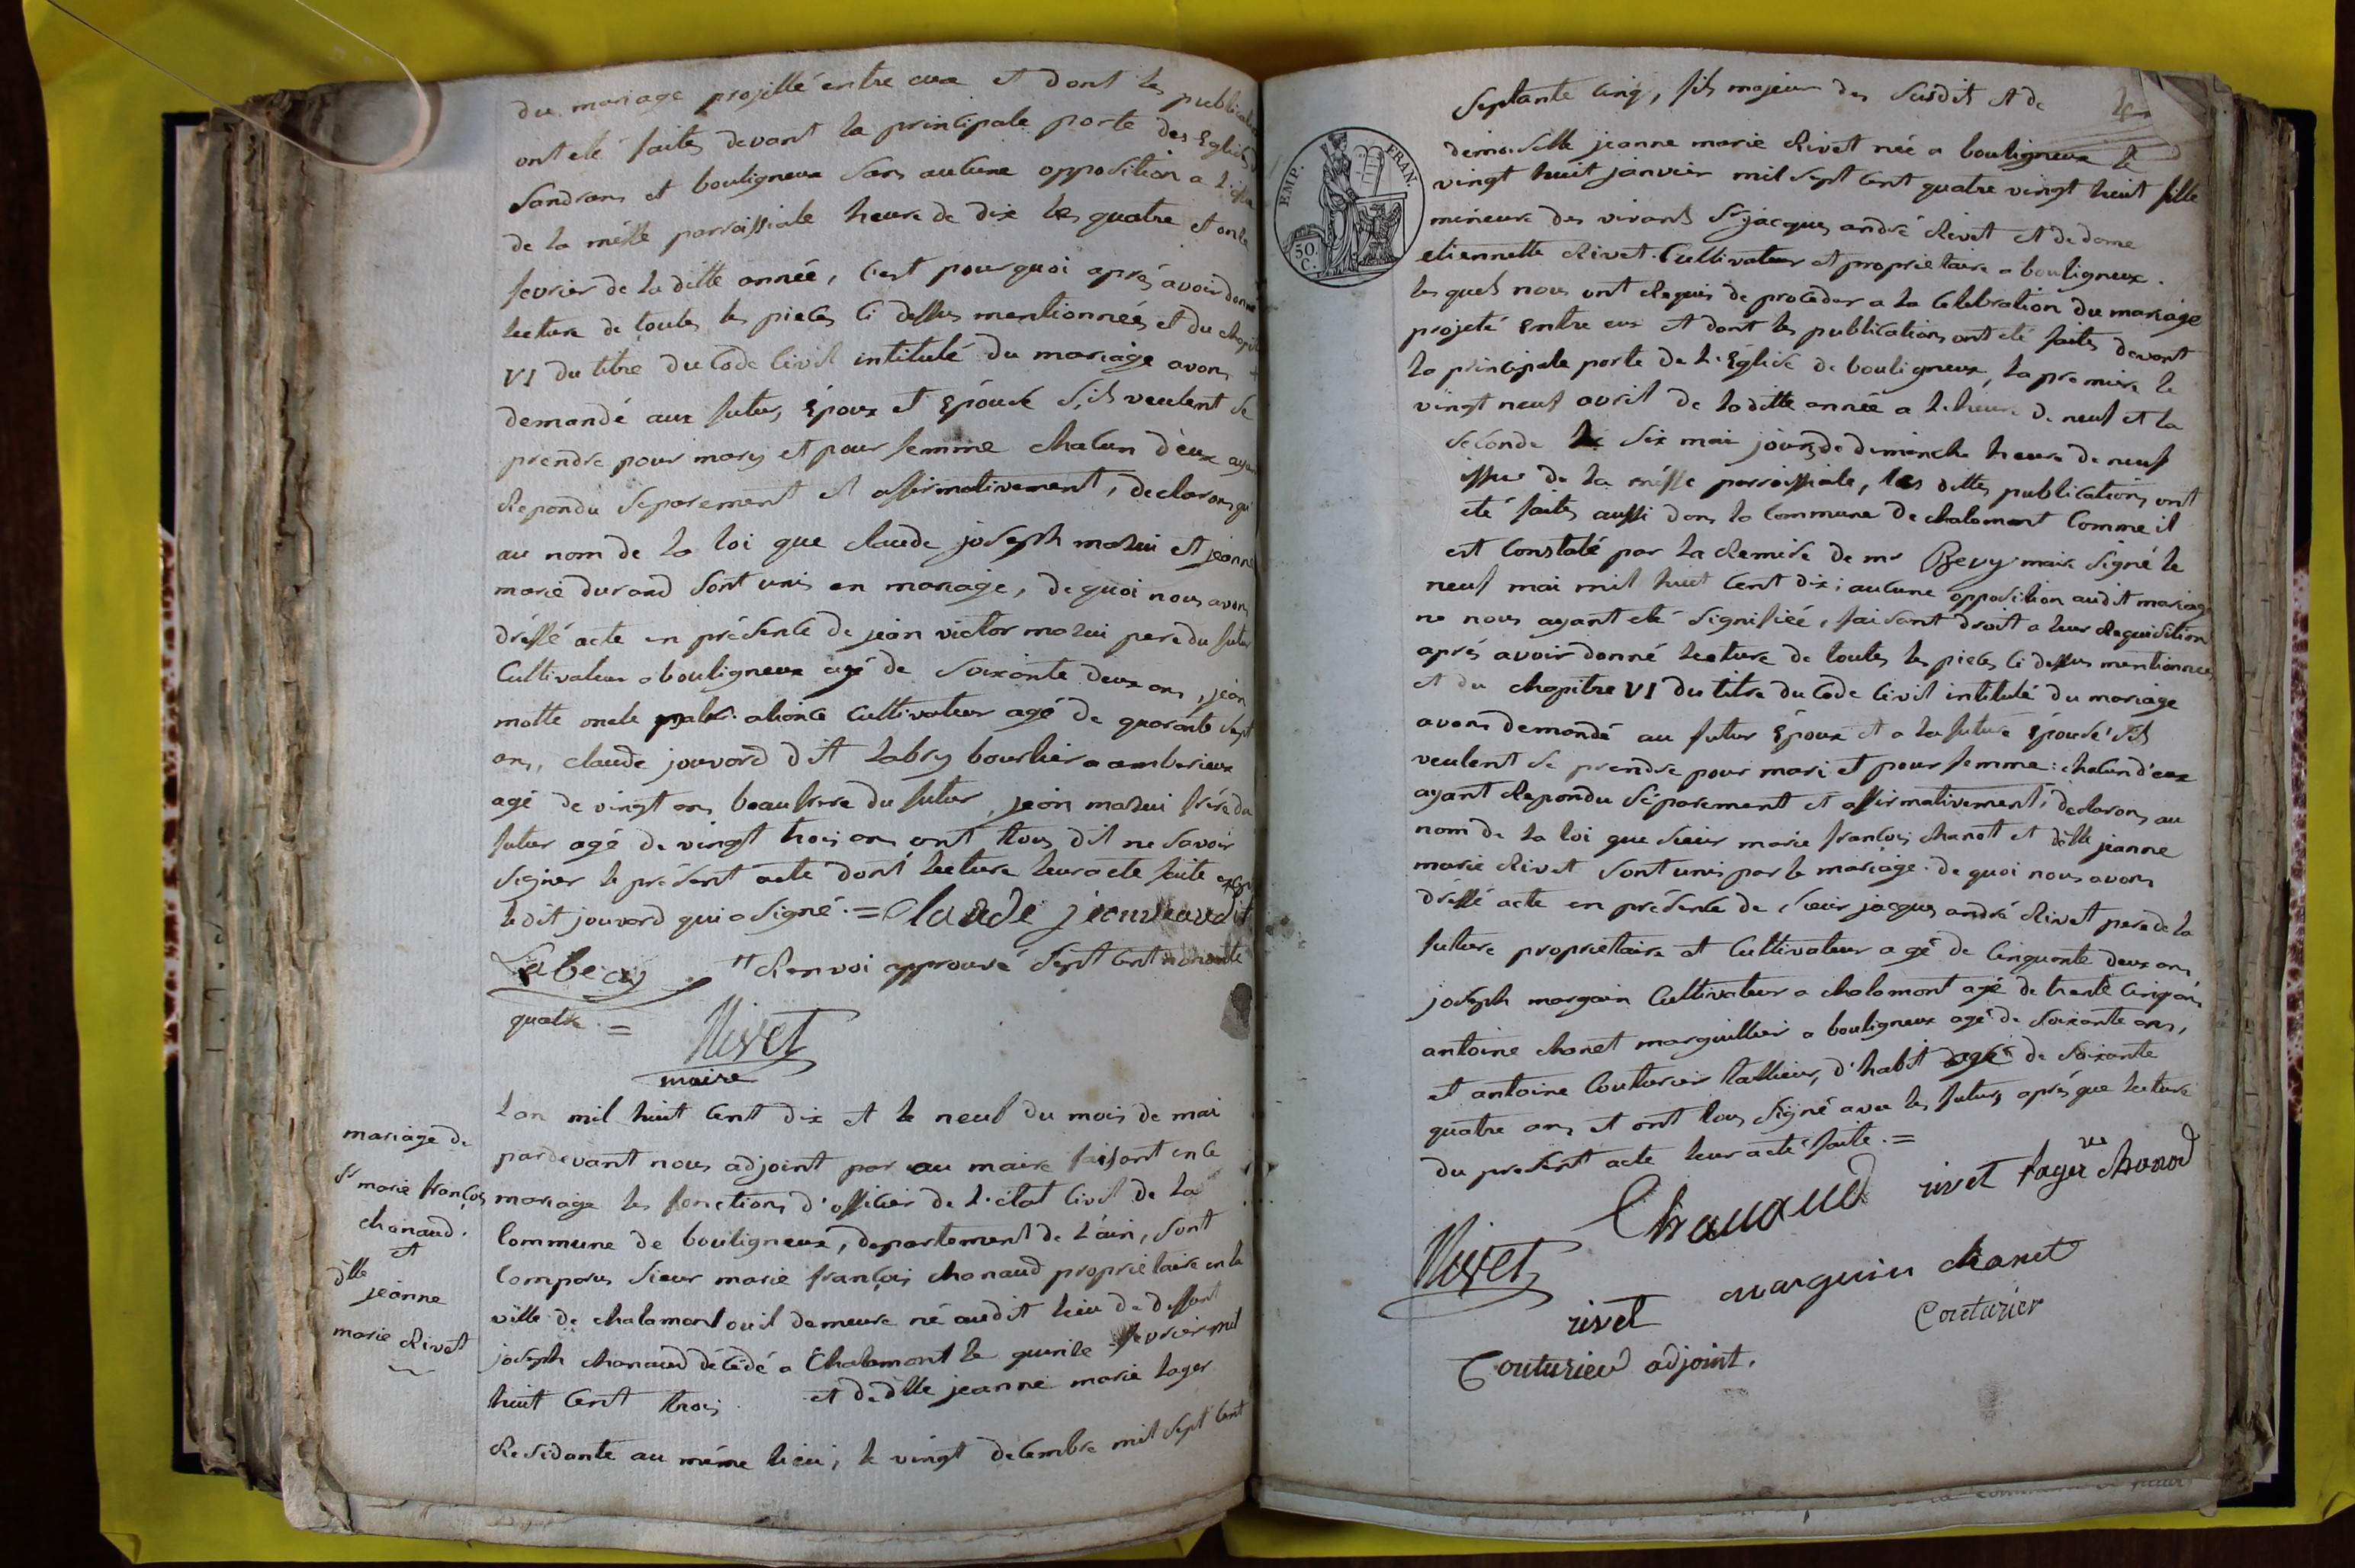 du mariage projetté entre eux et dont les publications
ont eté faites devant la principale porte des Eglises
Sandrans et bouligneux sans aucune opposition a l'issue
de la messe parroissiale heure de dix les quatre et onze
fevrier de la ditte année, c'est pourquoi aprés avoir donné
lecture de toutes les pieces ci dessus mentionnées et du chapitre
VI du titre du Code Civil intitulé du mariage avons
demandé aux futurs Epoux et Epouse s'ils veulent se
prendre pour mary et pour femme chacun d'eux ayant
Repondu Séparement et affirmativement, declarons
au nom de la loi que claude joseph mazui et jeanne
marie durand sont unis en mariage, de quoi nous avons
dréssé acte en présence de jean victor mazui pere du futur
Cultivateur a bouligneux agé de Soixante deux ans, jean
motte oncle Cultivateur agé de quarante sept
ans, claude jouvard dit Labry bourlier a amberieux
agé de vingt ans beaufrere du futur, jean mazui frére du
futur agé de vingt trois ans ont tous dit ne savoir
signer le présent acte dont lecture leur a eté faite
le dit jouvard qui a signé. = Claude jeouveard dit
Labery Renvoi approuvé Sept cent nonante
quatre. = Rivet
maire
mariage de
Sr marie françois
chanaud.
et
dlle
jeanne
marie Rivet
L'an mil huit Cent dix et le neuf du mois de mai
pardevant nous adjoint par au maire faisant en ce
mariage les fonctions d'officier de l'état Civil de la
Commune de bouligneux, departement de l'ain, sont
Comparus Sieur marie françois chanaud proprietaire en la
ville de chalamont ou il demeure né audit lieu de deffunt
joseph chanaud décédé a Chalamont le quinze fevrier mil
huit Cent trois et de dlle jeanne marie lager
Residante au même lieu; le vingt decembre mil Sept Cent
Septante Cinq, fils majeur des Susdit et de
demoiselle jeanne marie Rivet née a bouligneux le
vingt huit janvier mil Sept Cent quatre vingt huit fille
mineure des vivants Sr jacques andré Rivet et de dame
etiennette Rivet. Cultivateur et proprietaire a bouligneux.
les quels nous ont Requis de proceder a la Celebration du mariage
projeté entre eux et dont les publications ont eté faites devant
la principale porte de l'Eglise de bouligneux, la premiere le
vingt neuf avril de la ditte année a l'heure de neuf et la
seconde le six mai jour de dimenche heure de neuf
issue de la messe parroissiale, les dittes publications ont
eté faites aussi dans la Commune de chalamont Comme il
est Constaté par la Remise de mr Bevy maire signé le
neuf mai mil huit Cent dix; aucune opposition audit mariage
ne nous ayant eté signifiée, faisant droit a leur Requisition
aprés avoir donné lecture de toutes les pieces ci dessus mentionnées
et du chapitre VI du titre du Code Civil intitulé du mariage
avons demandé au futur Epoux et a la future Epouse s'ils
veulent se prendre pour mari et pour femme: chacun d'eux
ayant Repondu Séparement et affirmativement, declarons au
nom de la loi que Sieur marie françois chanot et dlle jeanne
marie Rivet sont unis par le mariage. de quoi nous avons
dressé acte en présence de Sieur jacques andré Rivet pere de la
future proprietaire et Cultivateur agé de Cinquante deux ans
joseph margain Cultivateur a chalamont agé de trente Cinq ans
antoine chanet marguillier a bouligneux agé de Soixante ans,
et antoine Couturier tallieur, d'habit agé de Soixante
quatre ans et ont tous signé avec les futurs aprés que lecture
du present acte leur a eté faite. =
Chanaud rivet lager ve chanod
Rivet
rivet marguin chanet
Couturier
Couturier adjoint.
EMP. FRAN.
50 C.